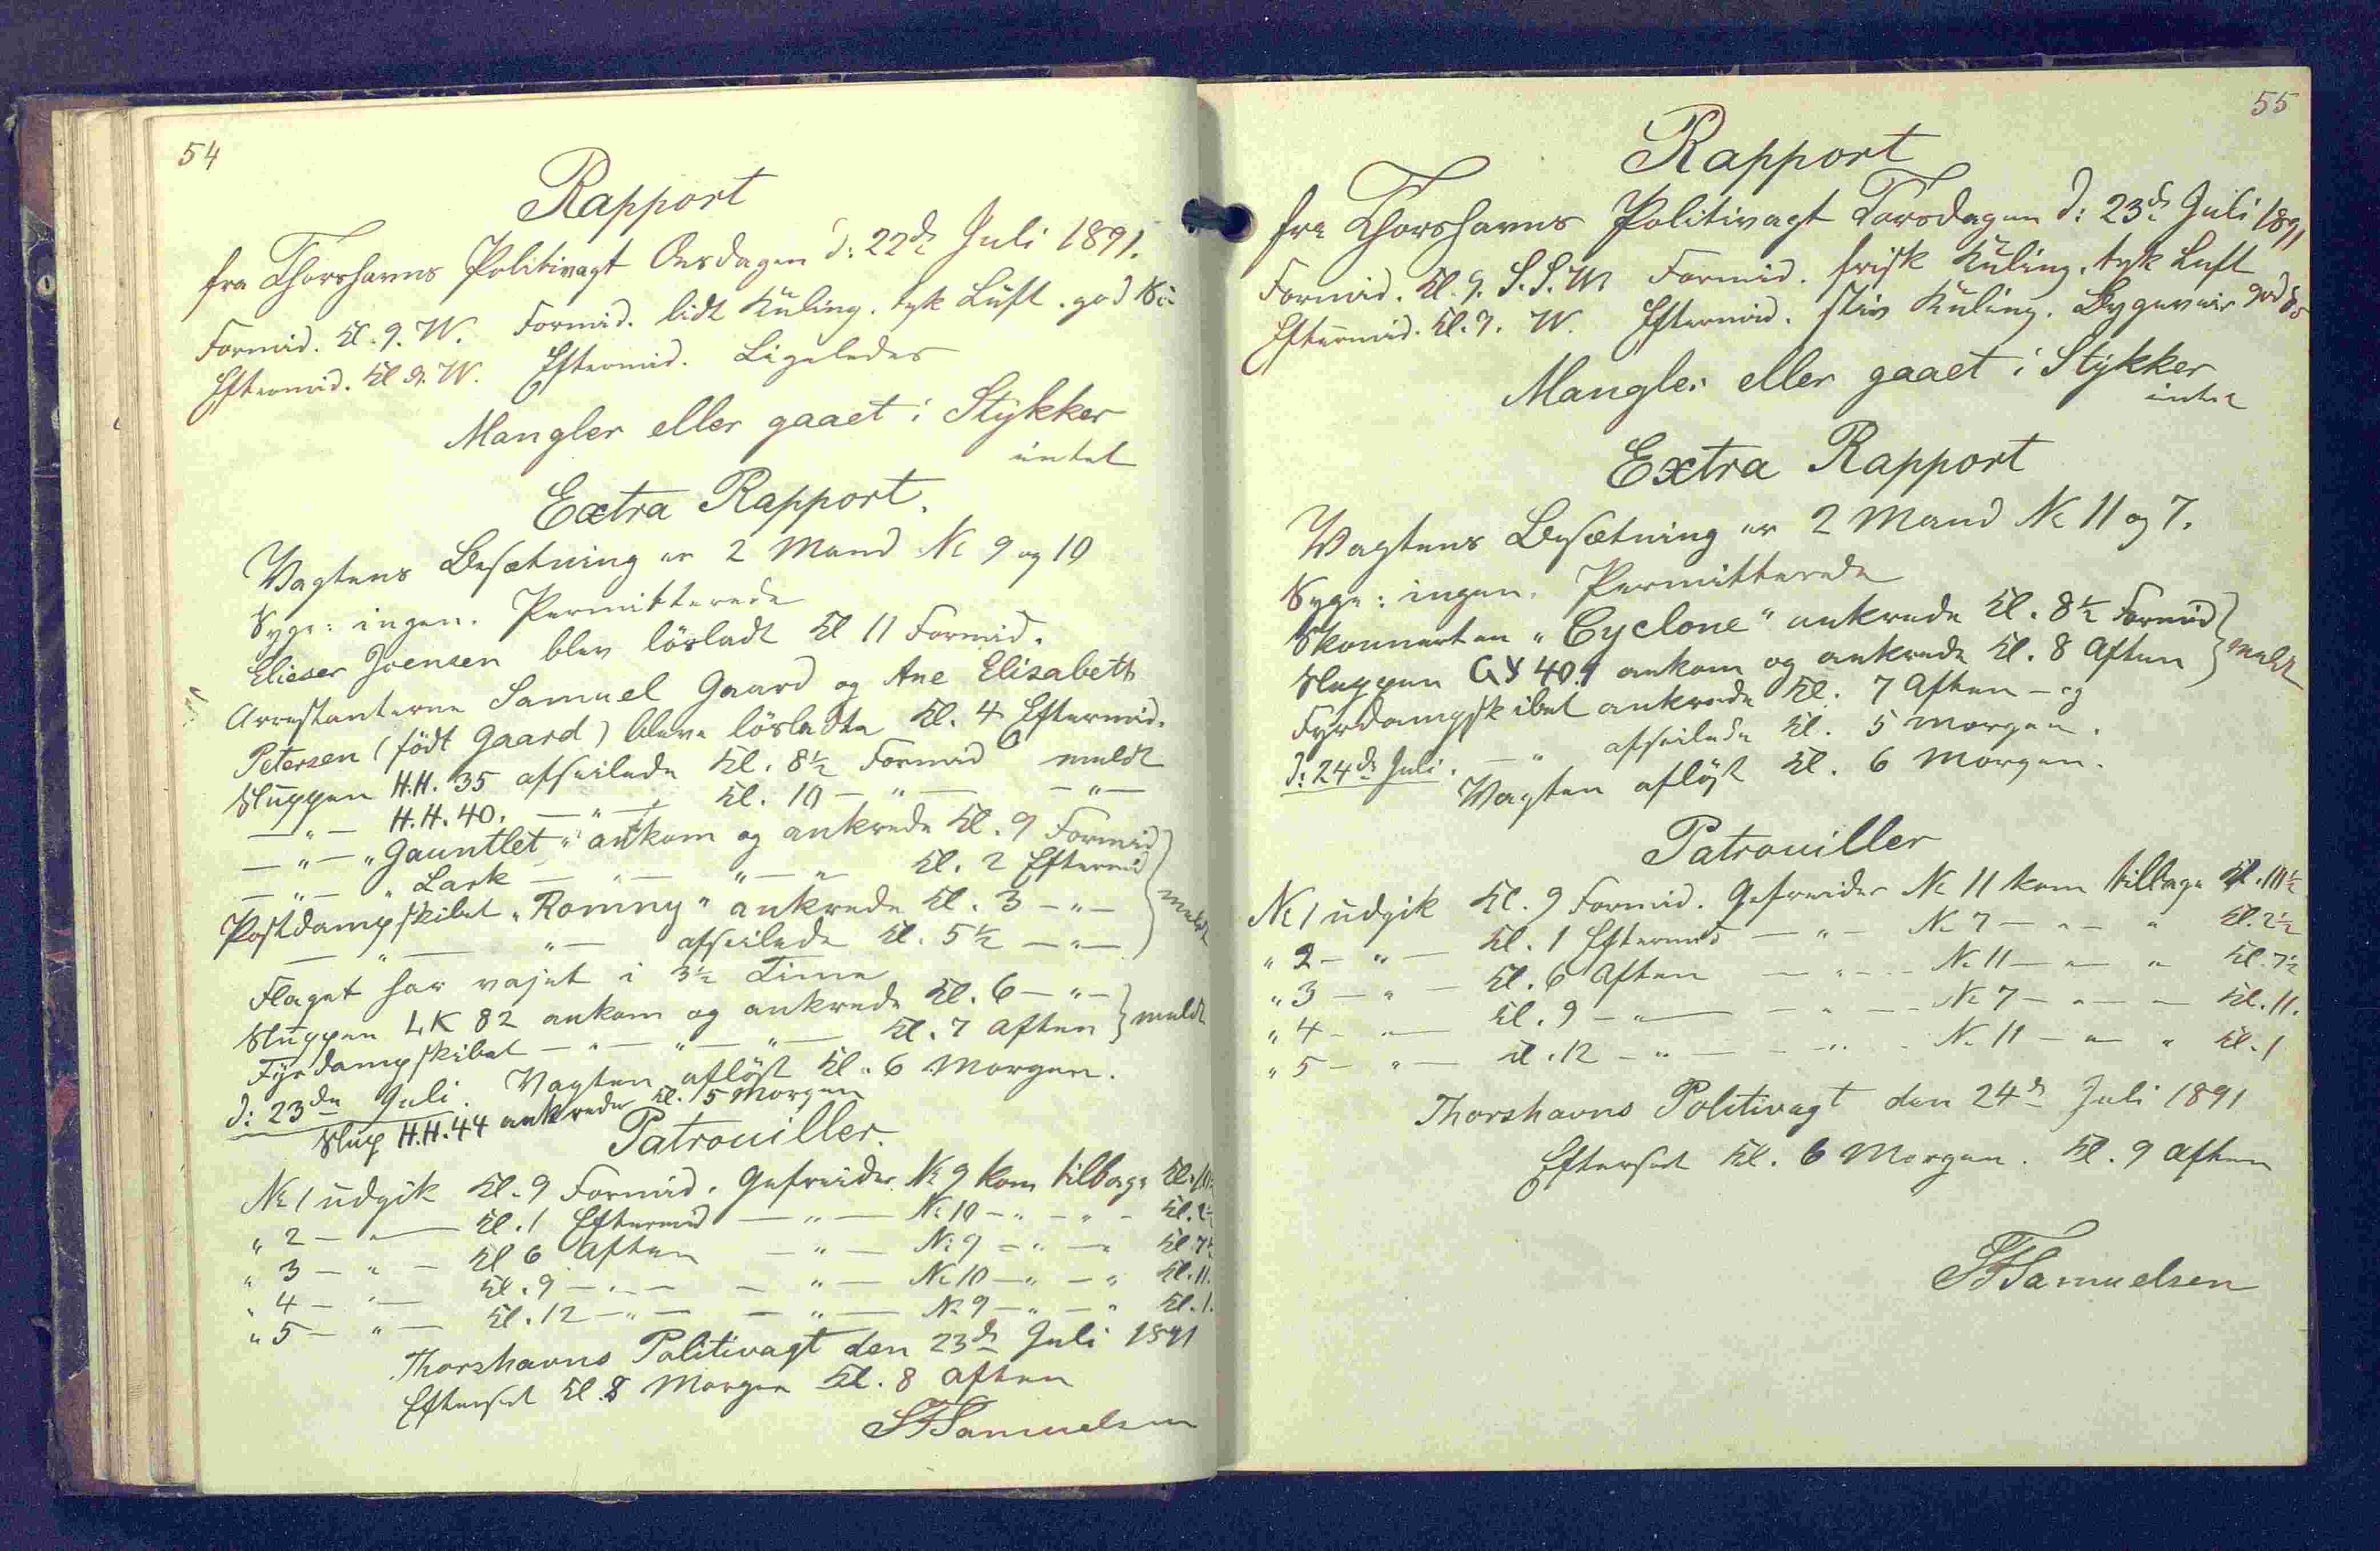 54
Rapport
fra Thorshavns Politivagt Onsdagen d: 22de Juli 1891.
Formid. Kl. 9. W. Formid. lidt Küling. tyk Lüft. god
Eftermid. Kl. 9. W. Eftermid. Ligeledes
Mangler eller gaaet i Stÿkker
intet
Extra Rapport.
Vagtens Besætning er 2 Mand No 9 og 10
Syge: ingen. Permitterede
Elieser Joensen blev lösladt Kl 11 Formid.
Arrestanterne Samuel Gaard og Ane Elisabeth
Petersen (födt Gaard) bleve lösladte Kl. 4 Eftermid.
Slüppen H.H. 35 afseilede Kl. 8½ Formid meldt
—"— H.H. 40. —"— Kl. 10 —"— —"—
—"— "Gauntlet" ankom og ankrede Kl. 9 Formid
—"— "Lark — "— "— " Kl. 2 Eftermid
Postdampskibet "Romny" ankrede Kl. 3 —"— meldt
—"— "— afseilede Kl. 5½ —"—
Flaget har vajet i 3½ Time
Slüppen LK 82 ankom og ankrede Kl. 6 —"—
Fyrdampskibet —"— "— "— Kl. 7 Aften meldt
d: 23de Juli. Vagten aflöst Kl. 6 Morgen.
Slup H.H. 44 ankrede Kl. 5 Morgen
Patrouiller.
No 1 üdgik Kl. 9 Formid. Gefreider No 9 kom tilbage Kl.
" 2 — "— Kl. 1 Eftermid —"— No 10 —"— " — Kl. 2½
" 3 — " — Kl 6 Aften —"— No 9 —"— Kl. 7½
" 4 — "— Kl. 9 —"— — "— No 10 —"—" Kl. 11.
" 5 — "— Kl. 12 —"— — "— No 9 —"— " Kl. 1.
Thorshavns Politivagt den 23de Juli 1891
Efterset Kl. 8 Morgen Kl. 8 Aften
Samuelsen
55
Rapport
fra Thorshavns Politivagt Torsdagen d: 23de Juli 1891
Formid. Kl. 9. S.S.W Formid. frisk Küling. tyk Luft
Eftermid. Kl. 9. W. Eftermid. stiv Küling. Bygeveir god
Mangler eller gaaet i Stÿkker
intet
Extra Rapport
Vagtens Besætning er 2 Mand No 11 og 7.
Syge: ingen. Permitterede
Skonnerten "Cyclone" ankrede Kl. 8½ Formid
Sluppen GY 409 ankom og ankrede Kl. 8 Aften meldt
Fyrdampskibet ankrede Kl. 7 Aften — og
d: 24de Juli. — " afseilede Kl. 5 Morgen.
Vagten aflöst Kl. 6 Morgen.
Patrouiller
No 1 üdgik Kl. 9 Formid. Gefreider No 11 kom tilbage Kl. 11½
" 2 — "— Kl. 1 Eftermid —"— No 7 —"— " Kl. 2½
" 3 — " — Kl. 6 Aften —"— No 11 —"— " Kl. 7½
" 4 — "— Kl. 9 —"— —"— No 7 —"— — Kl. 11.
" 5 — "— Kl. 12 —"— —"— No 11 —"— " Kl. 1
Thorshavns Politivagt den 24de Juli 1891
Efterset Kl. 6 Morgen. Kl. 9 Aften
Samuelsen